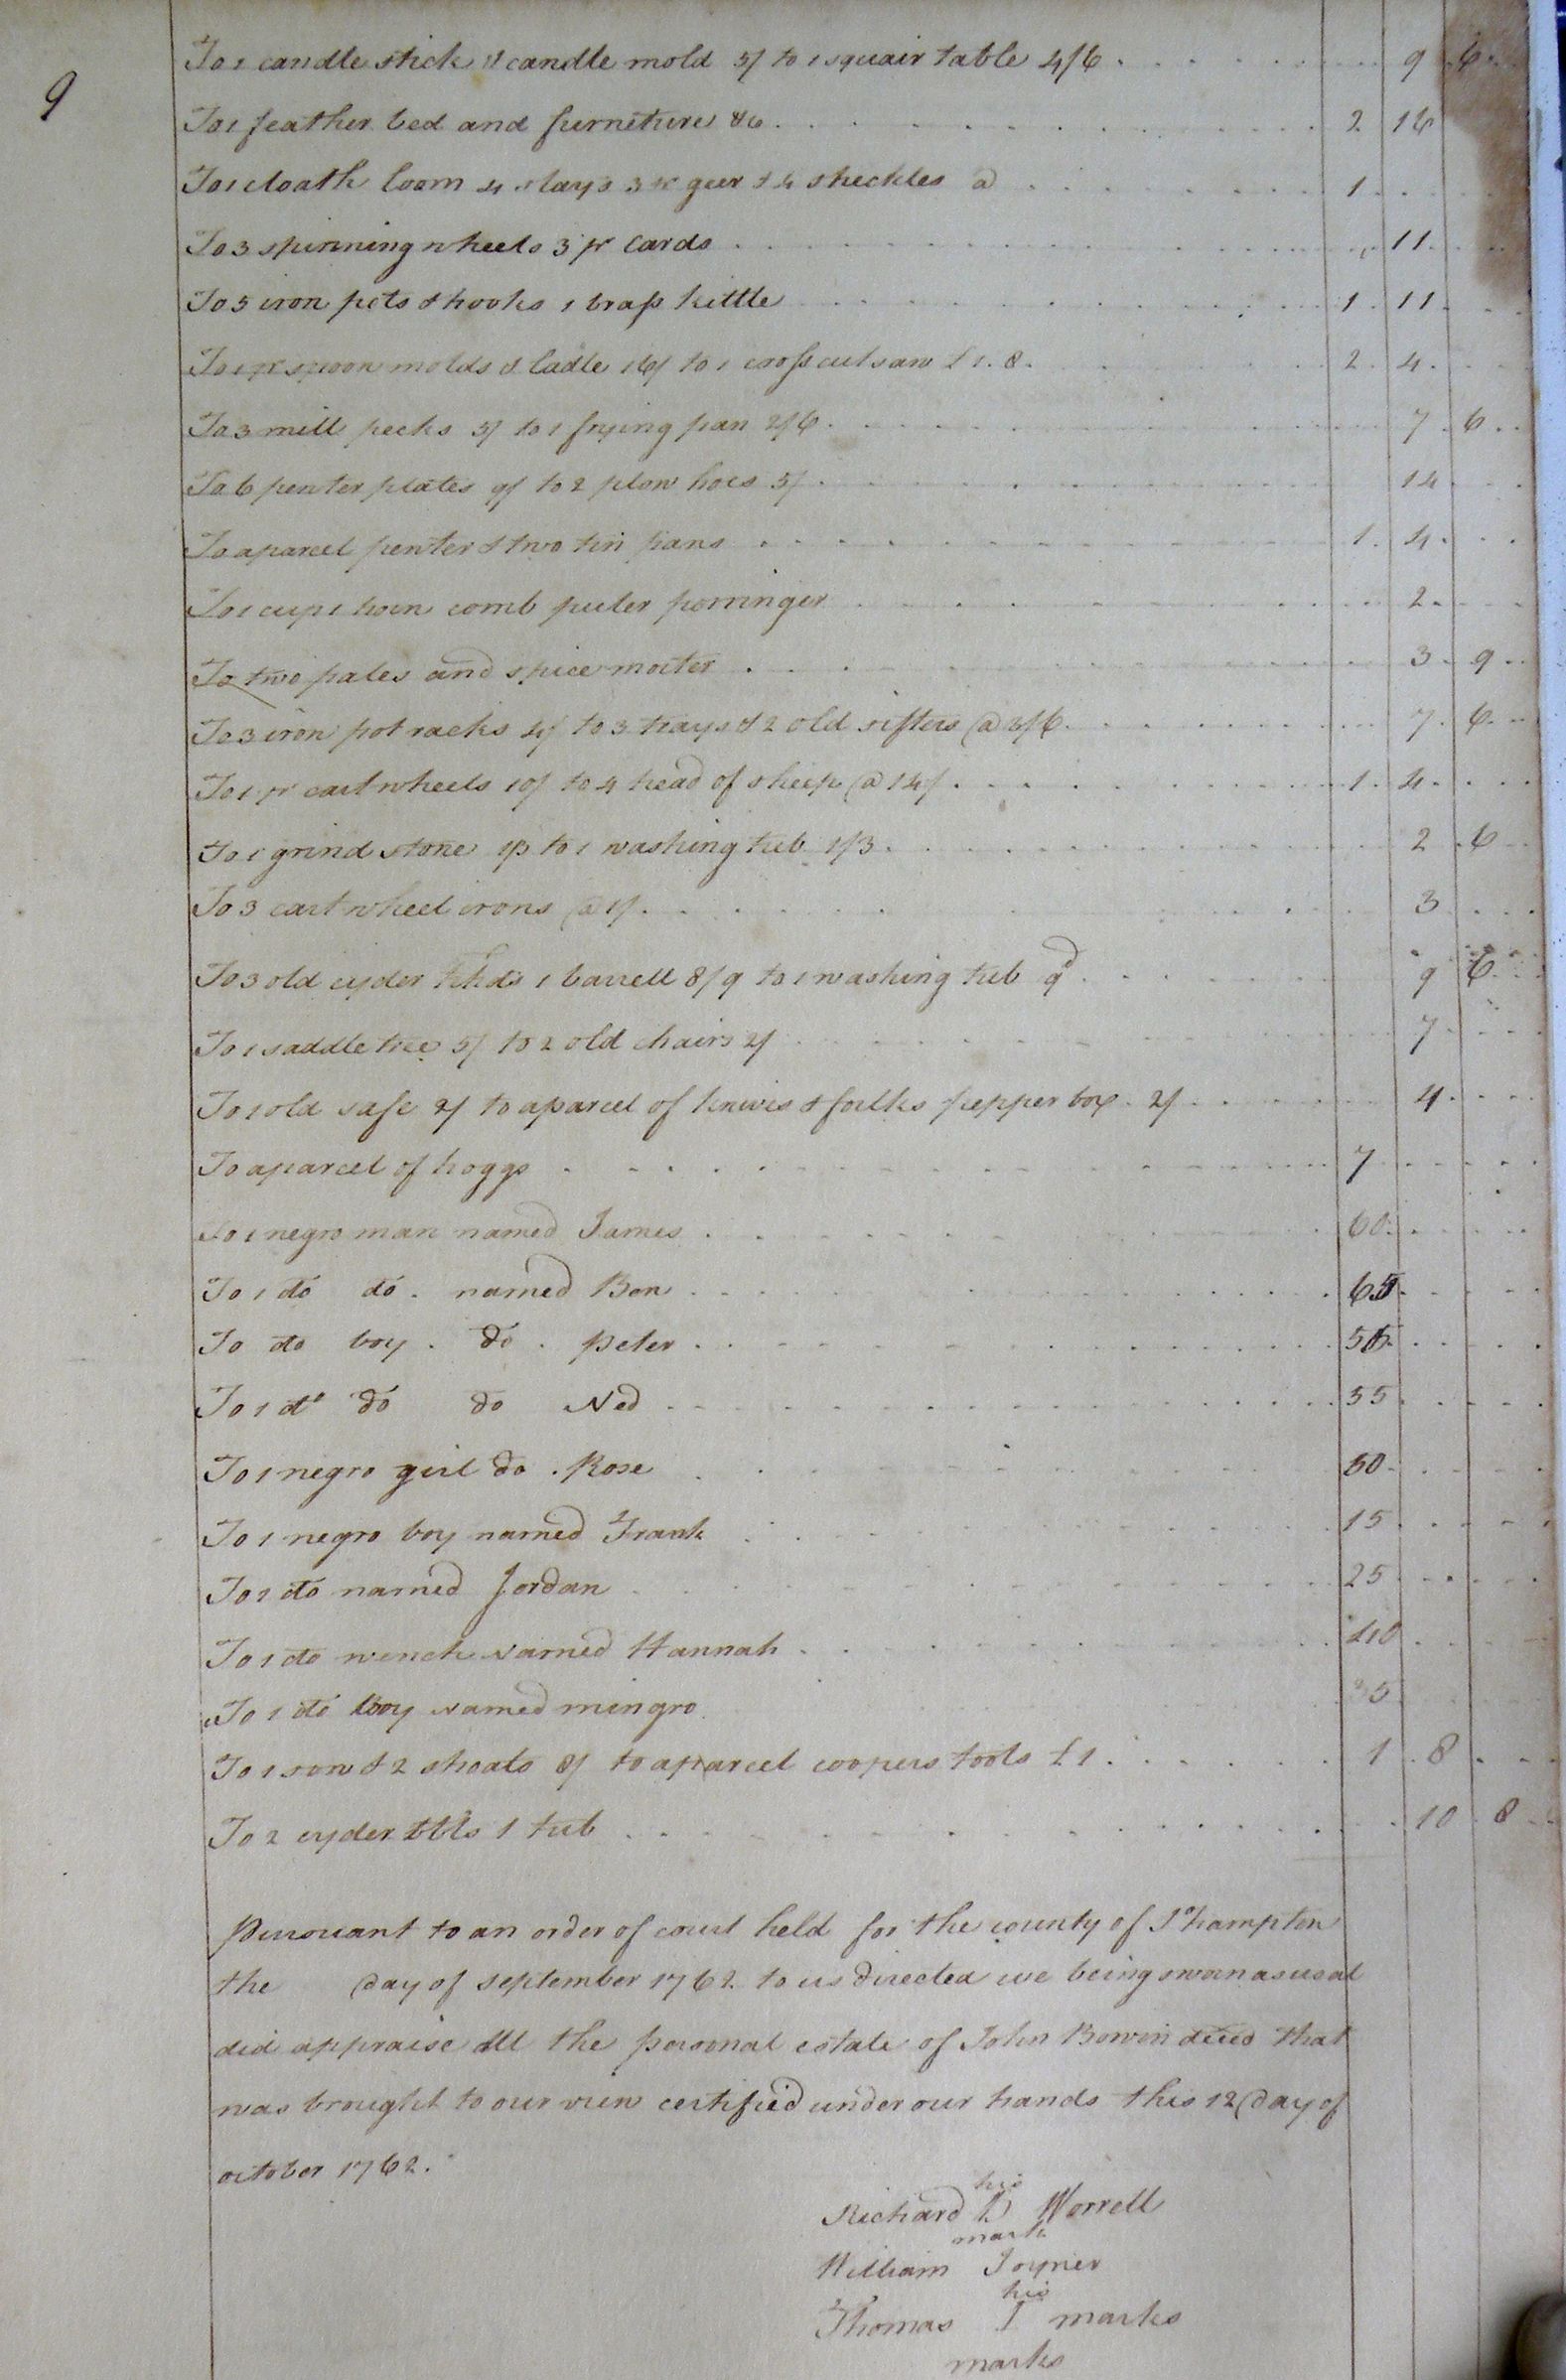 9
To 1 candle stick & candle mold 5/ to 1 squair table 4/6 9 6
To 1 feather bed and furneture 2 16
To 1 cloath loom 4 slays 3 pr geer & 4 sheckles a 1
To 3 spinning wheels 3 pr Cards 11
To 5 iron pots & hooks 1 brass kittle 1 11
To 1 pr spoon molds & ladle 16/ to 1 cross cut saw £1.8. 2 4
To 3 mill pecks 5/ to 1 frying pan 2/6 7 6
To 6 peuter plates 9/ to 2 plow hoes 5/ 14
To a parcel peuter & two tin pans 1 4
To 1 cup 1 horn comb puter porringer 2
To two pales and spice morter 3 9
To 3 iron pot racks 4/ to 3 trays & 2 old sifters @ 3/6 7 6
To 1 pr cart wheels 10/ to 4 head of sheep @ 14/ 1 4
To 1 grind stone 1/3 to 1 washing tub 1/3 2 6
To 3 cart wheel irons @ 1/ 3
To 3 old cyder hhds 1 barrell 8/9 to 1 washing tub 9d 9 6
To 1 saddle tree 5/ to 2 old chairs 2/ 7
To 1 old safe 2/ to a parcel of knives & folks pepper box 2/ 4
To a parcel of hoggs 7
To 1 negro man named James 60
To 1 do do. named Ben 65
To do boy. do. peter
To 1 do do do Ned 55
To 1 negro girl do. Rose 50
To 1 negro boy named Frank 15
To 1 do named Jordan 25
To 1 do wench Named Hannah 40
To 1 do boy Named mingro
To 1 sow & 2 shoats 8/ to a parcel coopers tools £1 1 8
To 2 cyder bbls 1 tub 10 8
Pursuant to an order of court held for the county of So hampton
the day of September 1762 to us directed we being sworn as usal
did appraise all the personal estate of John Bowin decd that
was brought to our view certified under our hands this 12 day of
october 1762.
his
Richard D Worrell
mark
William Joyner
his
Thomas T marks
marks